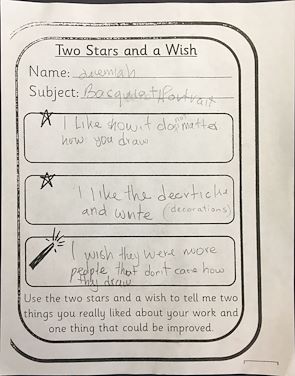 Two Stars and a Wish
Name: Jeremiah
Subject: Basquiat Portrait
I like how it dos not matter
how you draw
I like the
and write (decorations)
I wish they were more
people that don't care how
they draw
Use the two stars and a wish to tell me two
things you really liked about your work and
one thing that could be improved.